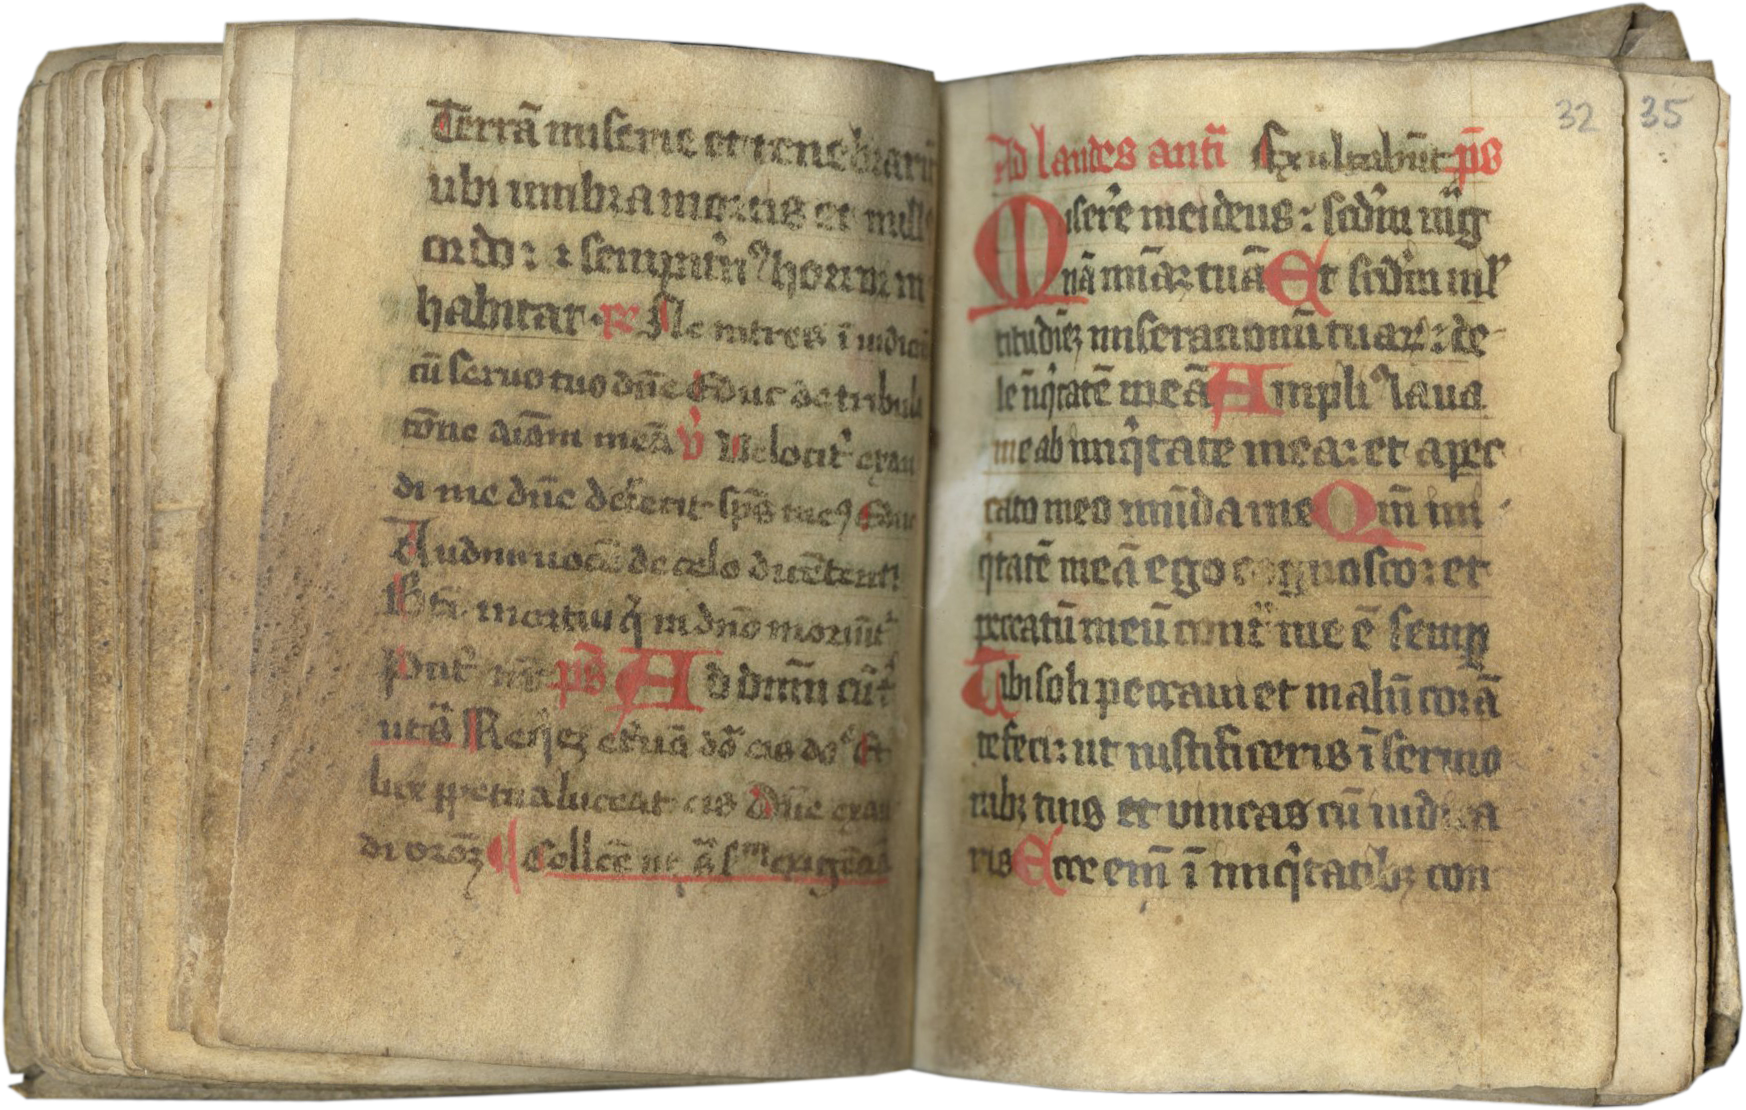 Terrā miserie et tenebrarū
ubi umbra mortis et null
ordo : ⁊ sempit'n⁹ horror in
habitat · R' Ne intres ī iudiciū
cū seruo tuo dn̄e Educ de tribula
cōne aīam meā V' Velocit' exau
di me dn̄e defecit sp̄s me⁹ Educ
Audiui uocē de celo dicētem
Bt̄i mortui q̄ in dn̄o moriūt'
ps̄ Ad dn̄m cū t'
Reqēz et'nā dō eis do͛ Et
luce ꝑpetua luceat eis Dn̄e exau
di orōꝫ ¶ Collectē
32 35
Ad laudes antī Exultabūt ps̄
Miser'e mei deus : scd'm mag
nā mīaꝫ tuā Et scd'm ml'
titudīeꝫ miseracionū tuaꝝ : de
le īiq̄tatē meā Ampli⁹ laua
me ab iniq̄tate mea : et a pec
cato meo mūda me Qm̄ ini
q̄tatē meā ego cognosco : et
peccatū meū cont͛ me ē semꝑ
Tibi soli peccaui et malū corā
te feci : ut iustificeris ī sermo
nibꝫ tuis et vincas cū iudica
ris Ecce em̄ ī iniq̄tatibꝫ con